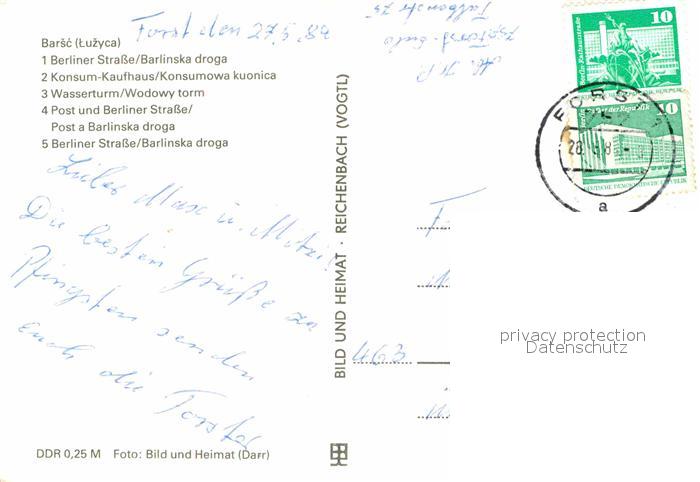 Forst den 27.5.82
Baršć (Łužyca)
1 Berliner Straße/Barlinska droga
2 Konsum-Kaufhaus/Konsumowa kuonica
3 Wasserturm/Wodowy torm
4 Post und Berliner Straße/
Post a Barlinska droga
5 Berliner Straße/Barlinska droga
Liebe Max u. Mitzi!
Die besten Grüße zu
Pfingsten senden
euch die Forster
DDR 0,25 M Foto: Bild und Heimat (Darr)
BILD UND HEIMAT · REICHENBACH (VOGTL)
10
Berlin-Rathausstraße
10
der Republik
DEUTSCHE DEMOKRATISCHE REPUBLIK
FORST
28
a
463
privacy protection
Datenschutz